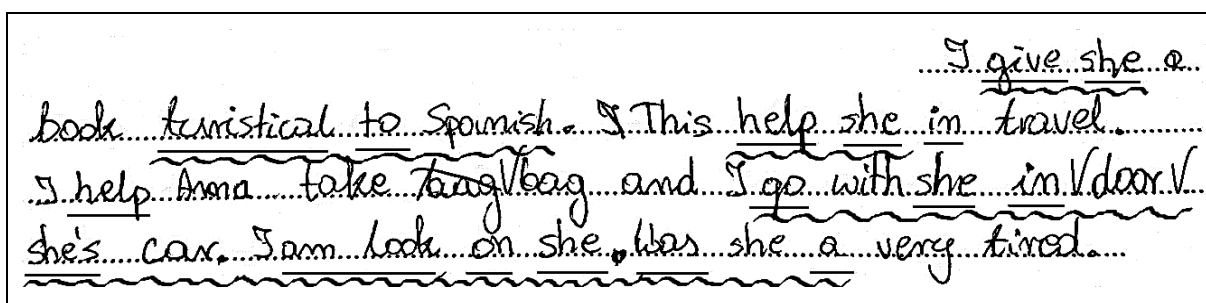 I give she a
book turistical to Spanish. I This help she in travel.
I help Anna take baag bag and I go with she in door
she's car. I am look on she. Was she a very tired.